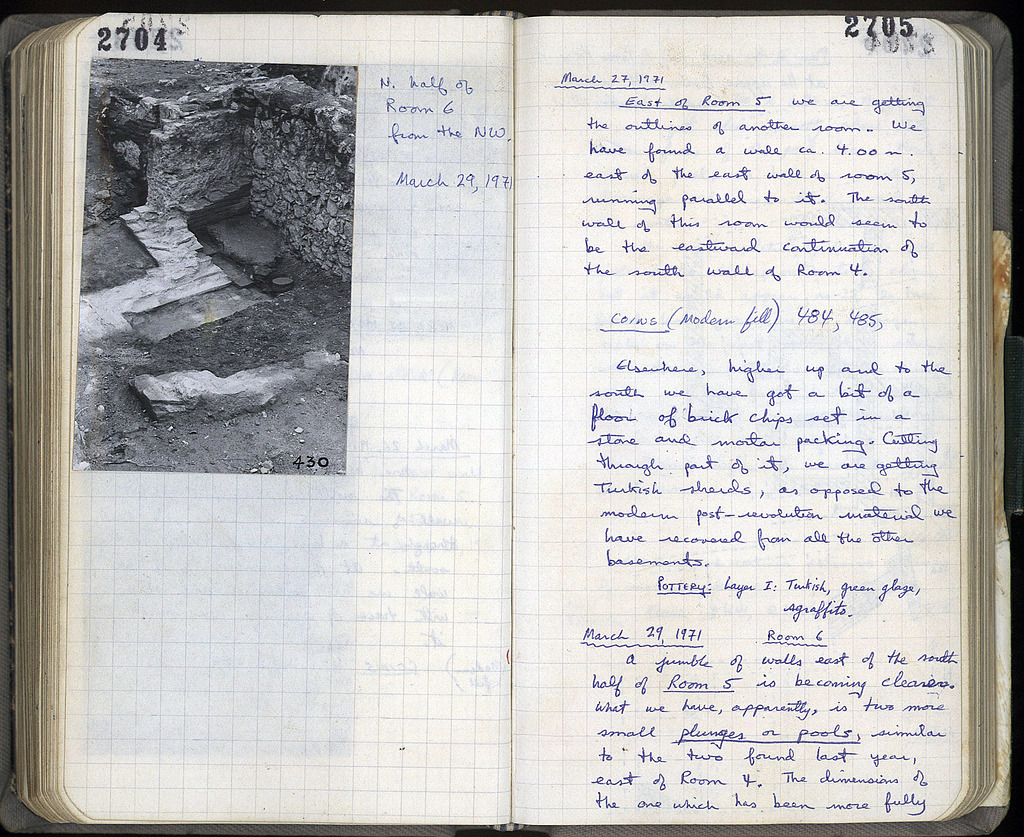 2704
N. half of
Room 6
from the NW.
March 29, 1971
430
2705
March 27, 1971
East of Room 5 we are getting
the outlines of another room. We
have found a wall ca. 4.00 m.
east of the east wall of room 5,
running parallel to it. The south
wall of this room would seem to
be the eastward continuation of
the south wall of Room 4.
Coins (Modern fill) 484, 485,
Elsewhere, higher up and to the
south we have got a bit of a
floor of brick chips set in a
stone and mortar packing. Cutting
through part of it, we are getting
Turkish sherds, as opposed to the
modern post-revolution material we
have recovered from all the other
basements.
POTTERY: Layer I: Turkish, green glaze,
sgraffito.
March 29, 1971 Room 6
A jumble of walls east of the south
half of Room 5 is becoming clearer.
What we have, apparently, is two more
small plunges or pools, similar
to the two found last year,
east of Room 4. The dimensions of
the one which has been more fully